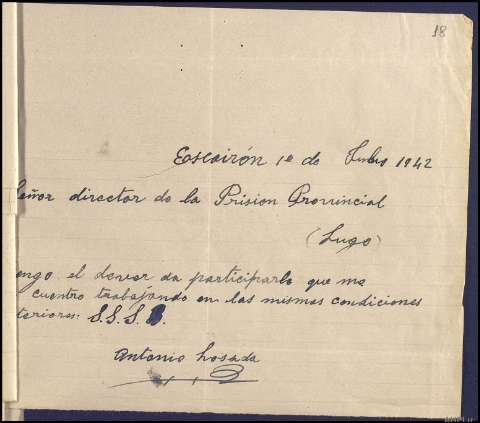 18
Escairón 1º de Julio 1942
Señor director de la Prision Provincial
(Lugo)
engo el dever da participarle que me
cuentro trabajando en las mismas condiciones
teriores: S.S.S.
Antonio Losada